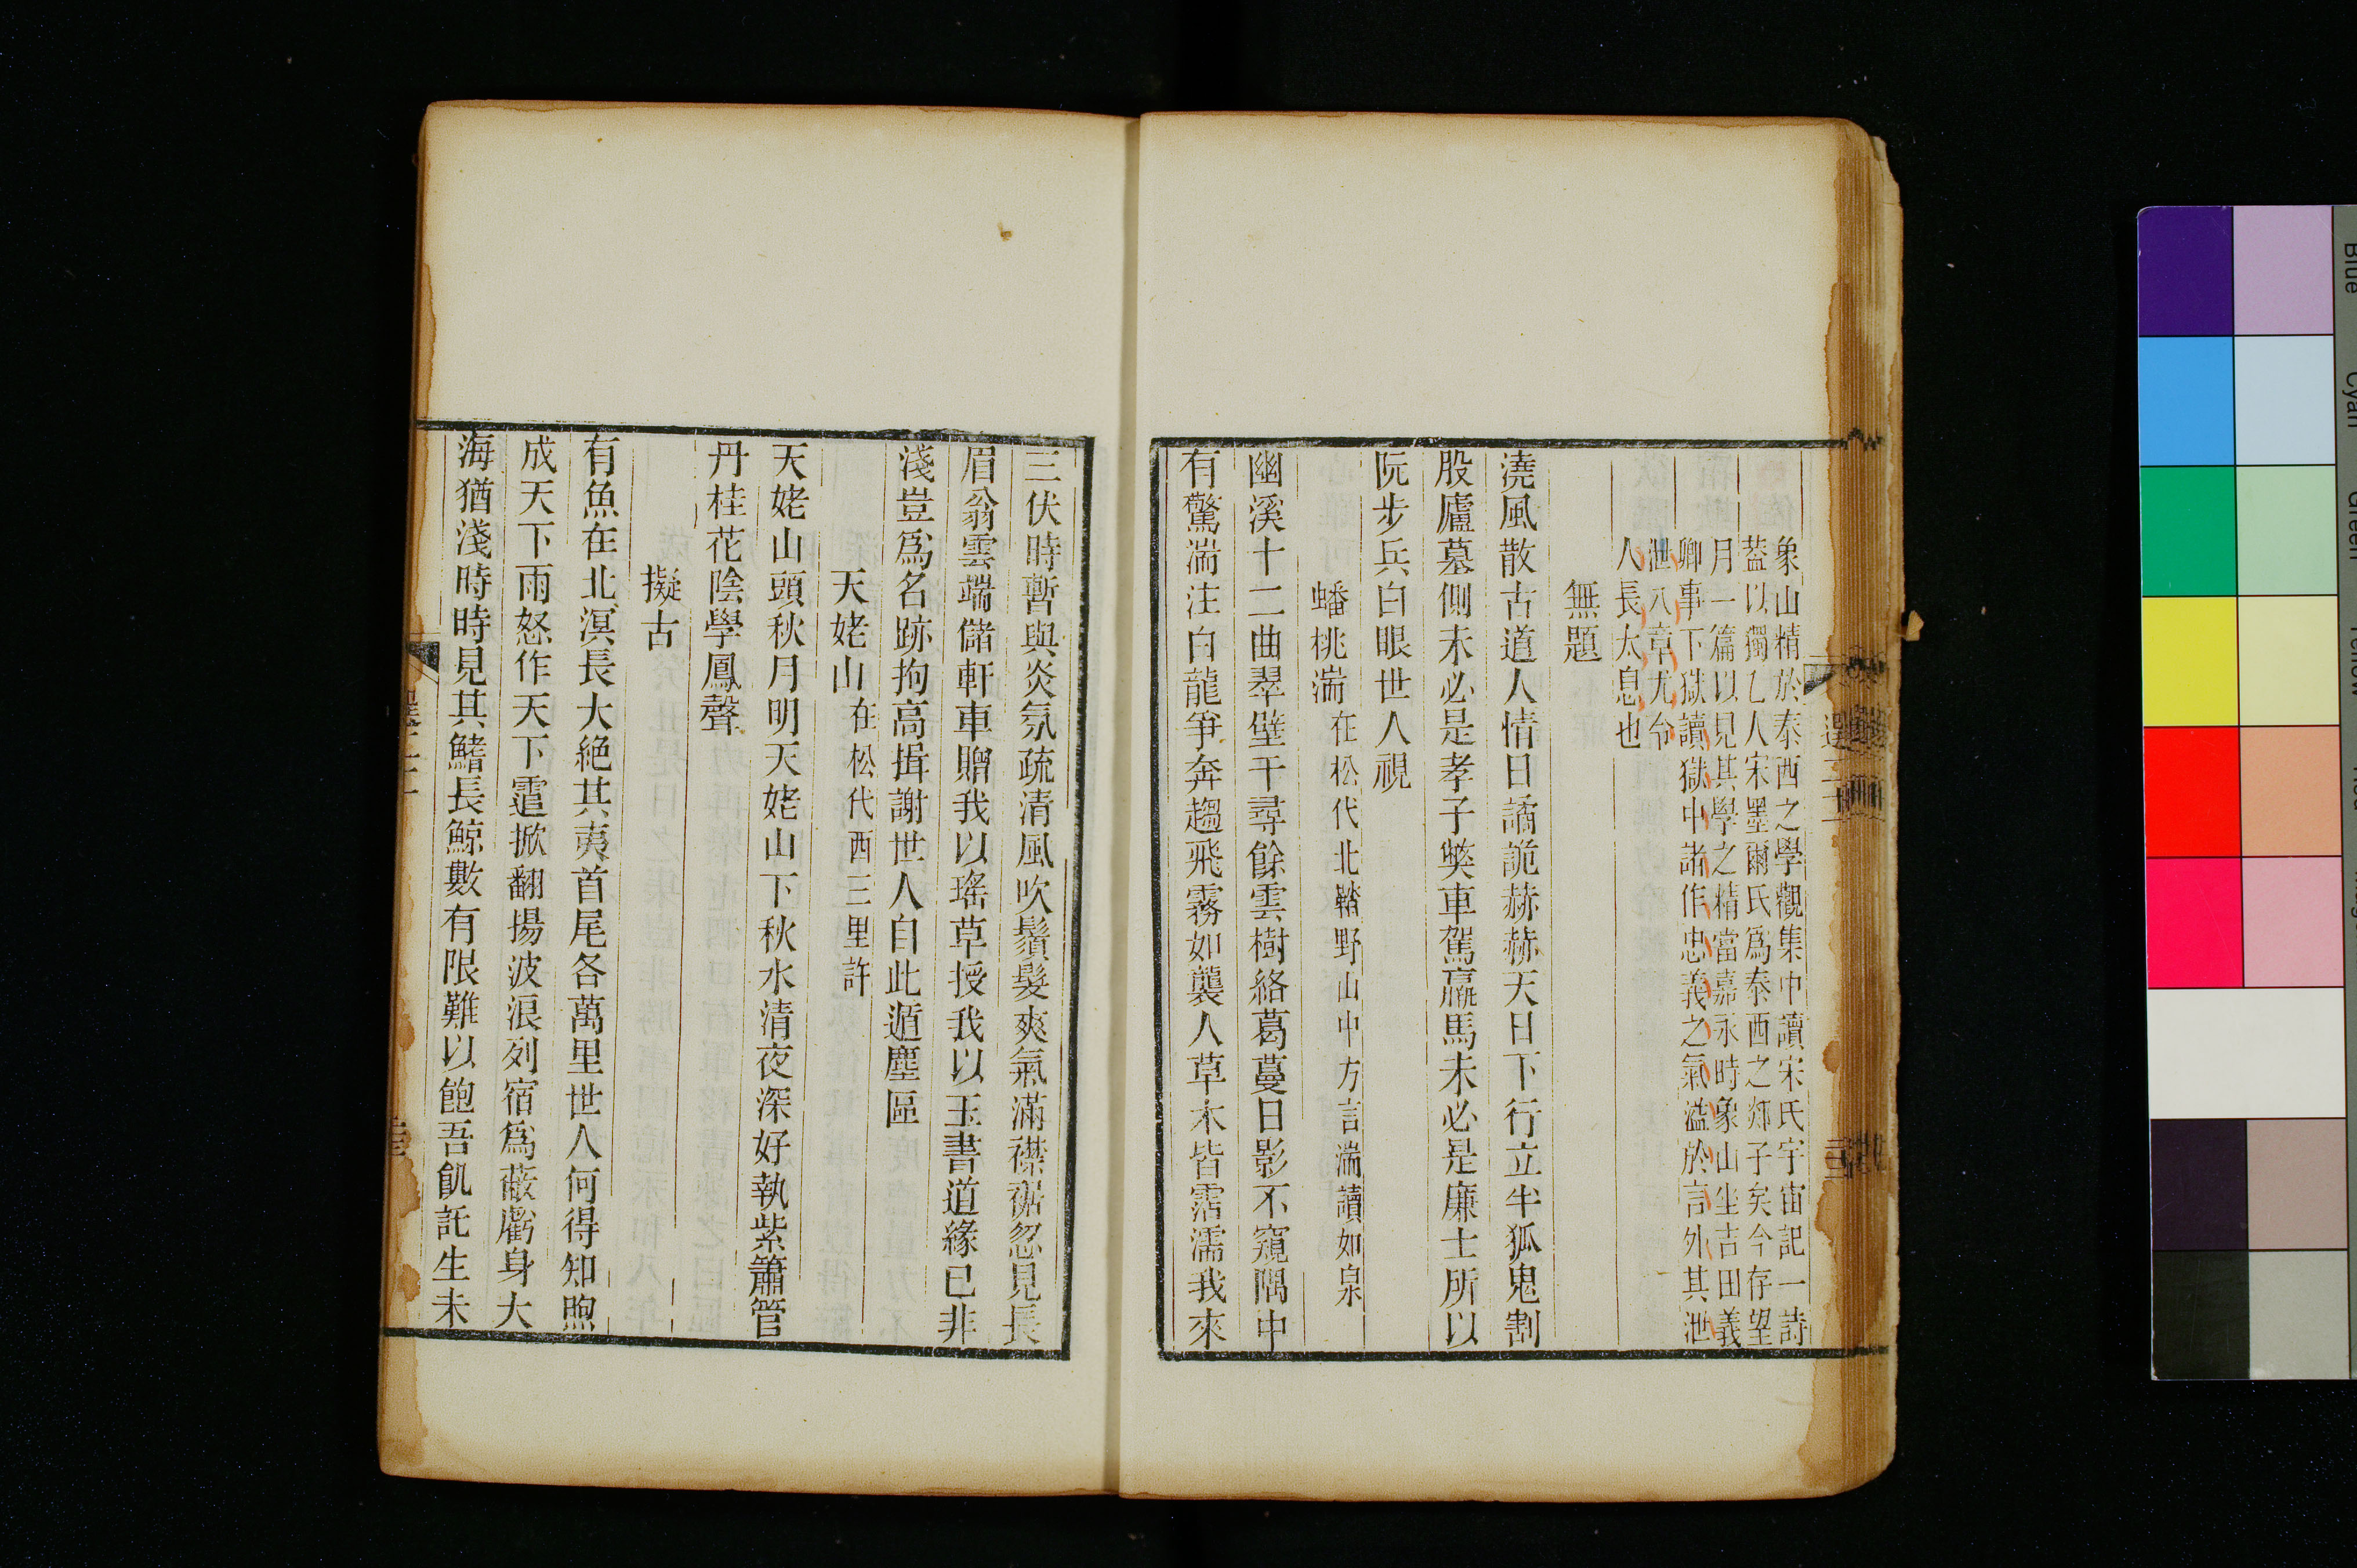 象山精於泰西之學觀集中讀宋氏宇宙記一詩
蓋以獨乙人宋墨爾氏爲泰西之郑子矣今存望
月一篇以見其學之精當嘉永時象山坐吉田義
卿事下獄讀獄中諸作忠義之氣溢於言外其泄
泄八章尤令
人長太息也
無題
澆風散古道人情日譎詭赫赫天日下行立半狐鬼割
股廬墓側未必是孝子獘車駕羸馬未必是廉士所以
阮步兵白眼世人視
蟠桃湍在松代北鞜野山中方言湍讀如泉
幽溪十二曲翠壁千尋餘雲樹絡葛蔓日影不窺隅中
有驚湍注白龍爭奔趨飛霧如襲人草木皆霑濡我來
三伏時暫與炎氛疏清風吹鬚髮爽氣滿襟裾忽見長
眉翁雲端儲軒車贈我以瑤草授我以玉書道緣已非
淺豈爲名跡拘高揖謝世人自此遁塵區
天姥山在松代西三里許
天姥山頭秋月明天姥山下秋水清夜深好執紫簫管
丹桂花陰學鳳聲
擬古
有魚在北溟長大絕其夷首尾各萬里世人何得知煦
成天下雨怒作天下霆掀翻揚波浪列宿爲蔽虧身大
海猶淺時時見其鰭長鯨數有限難以飽吾飢託生未